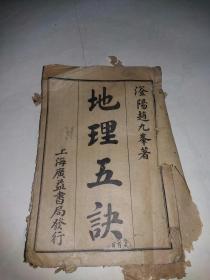 滏陽趙九峯著
地理五訣
上海廣益書局發行